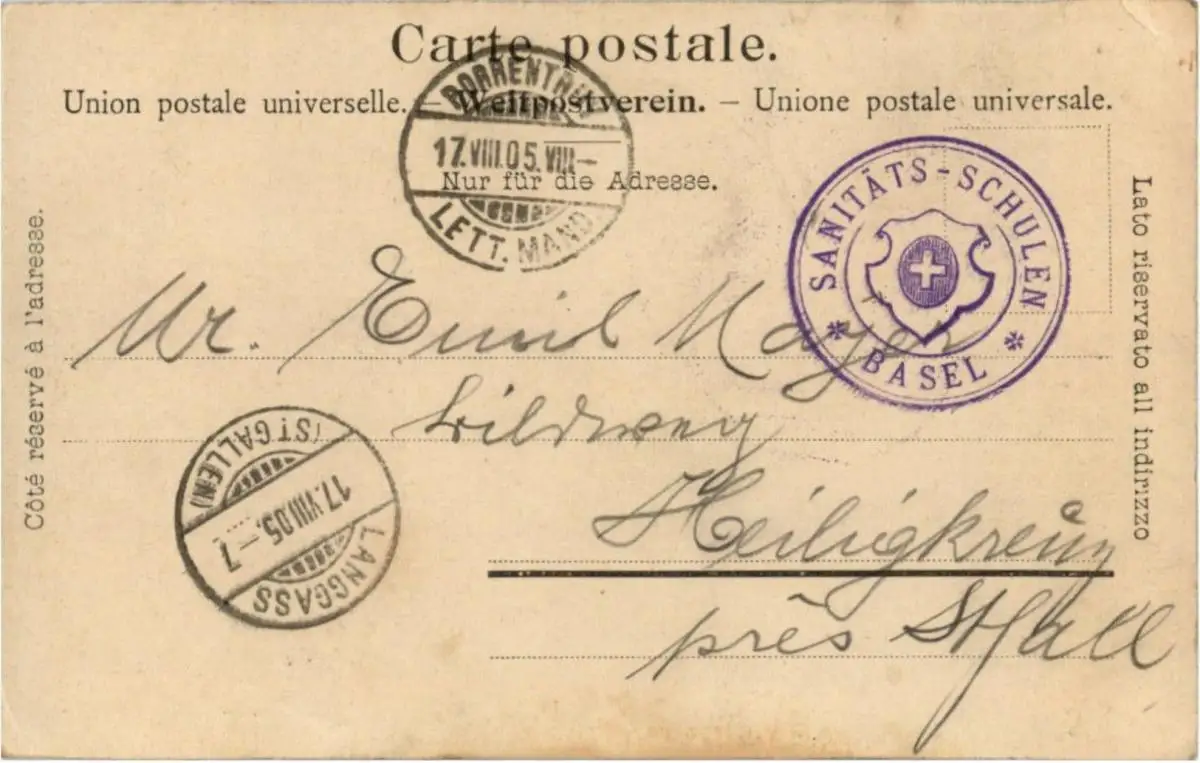 Carte postale.
Union postale universelle. – Weltpostverein. – Unione postale universale.
PORRENTRUY
17.VIII.05.VIII–
LETT. MAND
Nur für die Adresse.
SANITÄTS-SCHULEN
* BASEL *
Côté réservé à l'adresse.
Lato riservato all indirizzo
Mr. Emil Mayer
Wildweg
Heiligkreuz
près St Gall
LANGGASS
17.VIII.05.–7
(ST GALLEN)